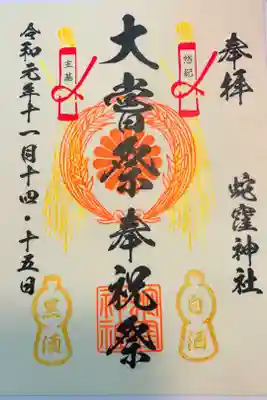 奉拝
蛇窪神社
悠紀
白酒
大嘗祭奉祝祭
主基
黒酒
令和元年十一月十四・十五日